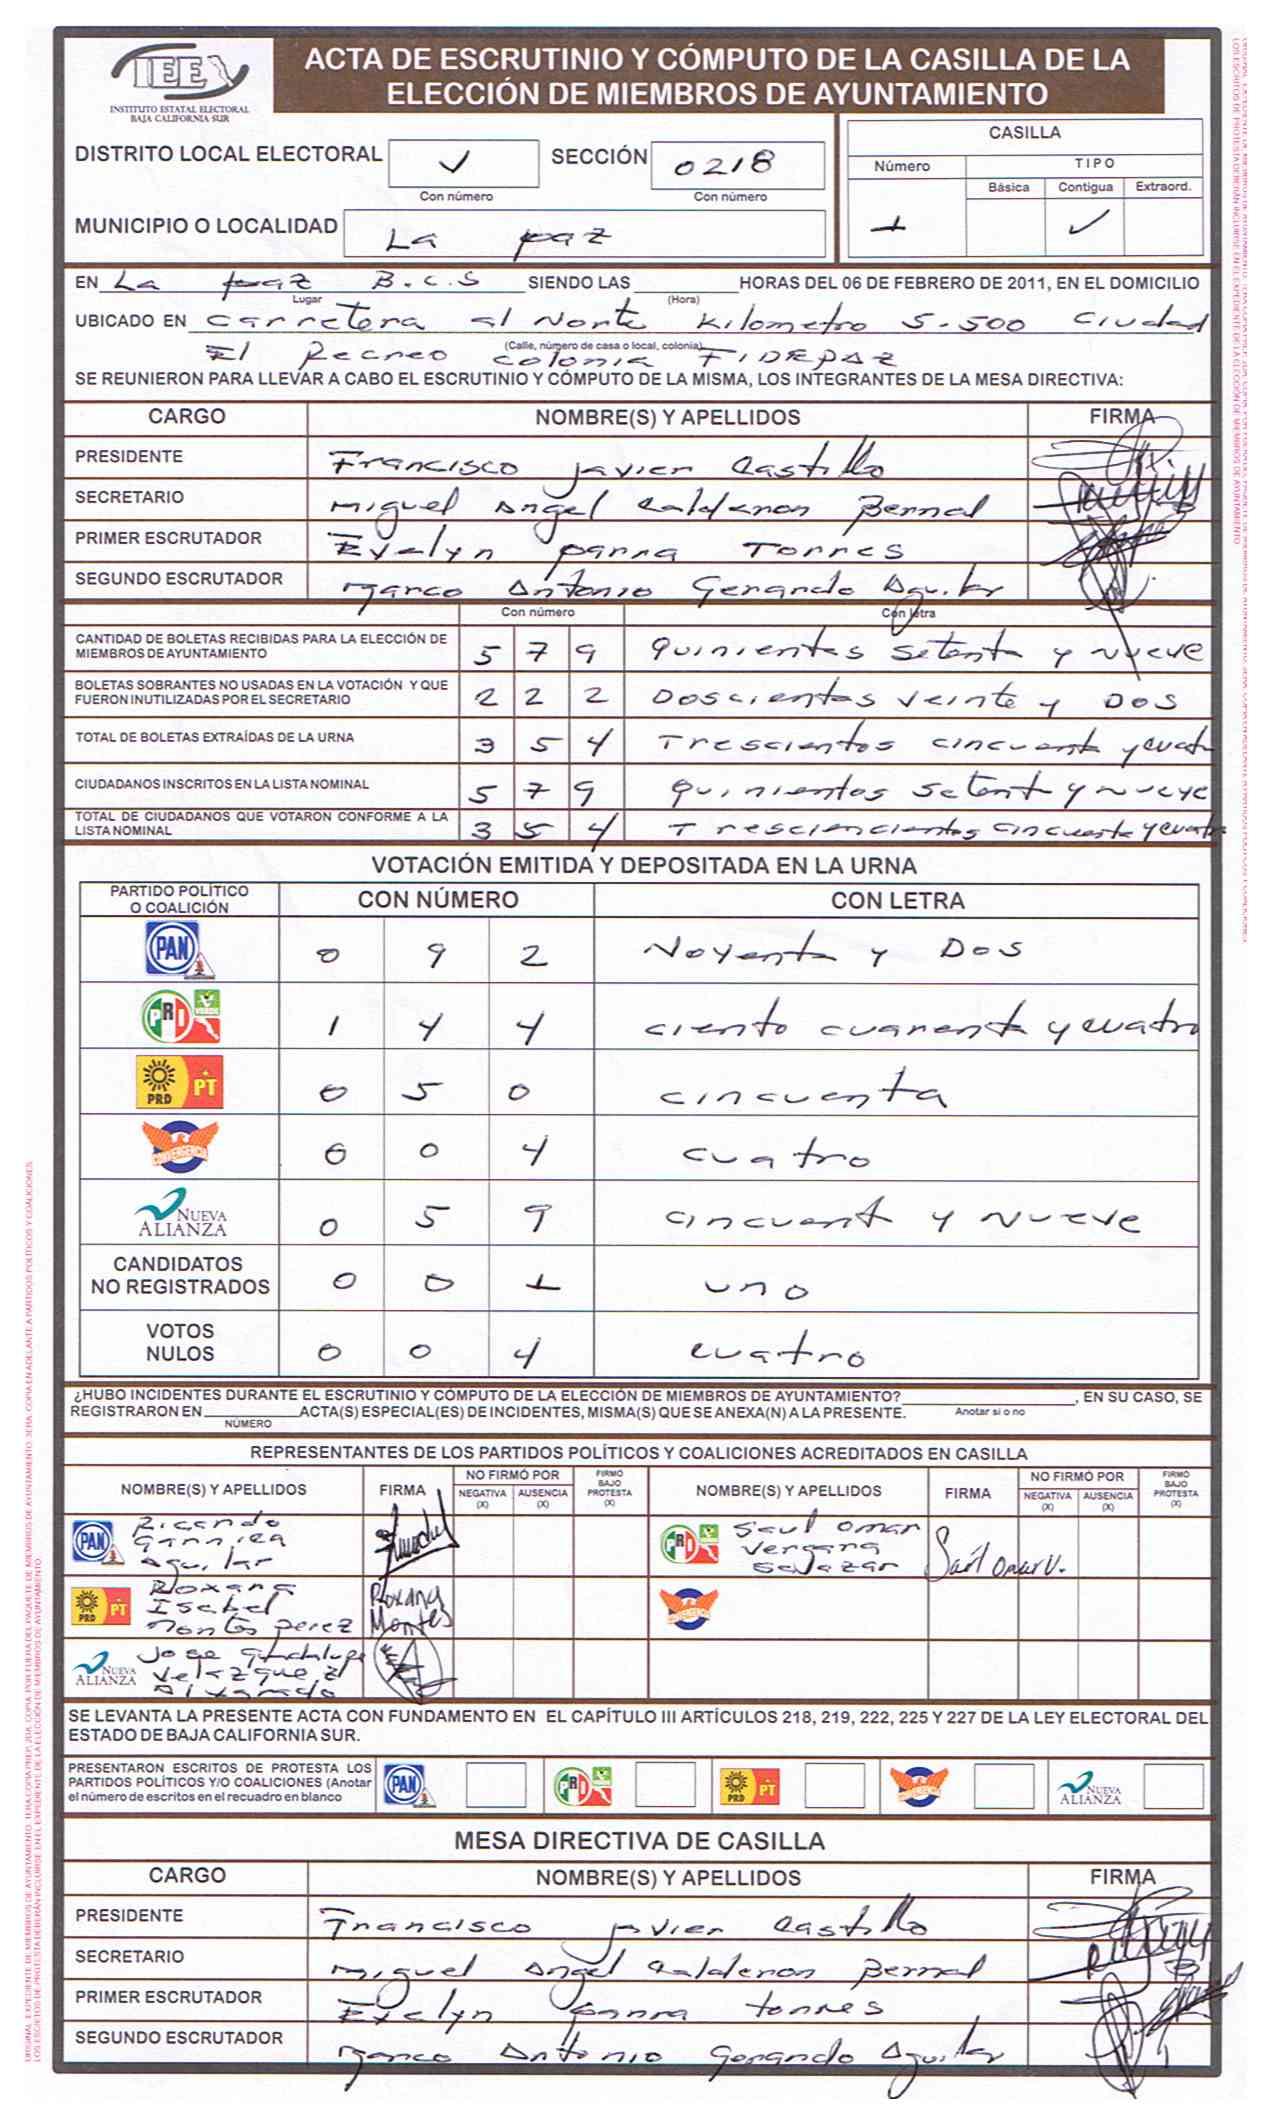 ACTA DE ESCRUTINIO Y CÓMPUTO DE LA CASILLA DE LA
ELECCIÓN DE MIEMBROS DE AYUNTAMIENTO
IEE
INSTITUTO ESTATAL ELECTORAL
BAJA CALIFORNIA SUR
DISTRITO LOCAL ELECTORAL V SECCIÓN 0218
Con número Con número
MUNICIPIO O LOCALIDAD La paz
CASILLA
Número TIPO
Básica Contigua Extraord.
1 ✓
EN La paz B.C.S SIENDO LAS HORAS DEL 06 DE FEBRERO DE 2011, EN EL DOMICILIO
Lugar (Hora)
UBICADO EN carretera al Norte Kilometro 5.500 Ciudad
(Calle, número de casa o local, colonia)
El Recreo colonia FIDEPAZ
SE REUNIERON PARA LLEVAR A CABO EL ESCRUTINIO Y CÓMPUTO DE LA MISMA, LOS INTEGRANTES DE LA MESA DIRECTIVA:
CARGO NOMBRE(S) Y APELLIDOS FIRMA
PRESIDENTE Francisco javier Castillo
SECRETARIO Miguel Angel Calderon Bernal
PRIMER ESCRUTADOR Evelyn parra Torres
SEGUNDO ESCRUTADOR Marco Antonio Gerardo Aguilar
Con número Con letra
CANTIDAD DE BOLETAS RECIBIDAS PARA LA ELECCIÓN DE
MIEMBROS DE AYUNTAMIENTO 5 7 9 Quinientas Setenta y Nueve
BOLETAS SOBRANTES NO USADAS EN LA VOTACIÓN Y QUE
FUERON INUTILIZADAS POR EL SECRETARIO 2 2 2 Doscientas Veinte y Dos
TOTAL DE BOLETAS EXTRAÍDAS DE LA URNA 3 5 4 Trescientos cincuenta y cuatr
CIUDADANOS INSCRITOS EN LA LISTA NOMINAL 5 7 9 Quinientos Setenta y nueve
TOTAL DE CIUDADANOS QUE VOTARON CONFORME A LA
LISTA NOMINAL 3 5 4 Tresciencientos cincuenta y cuatro
VOTACIÓN EMITIDA Y DEPOSITADA EN LA URNA
PARTIDO POLÍTICO
O COALICIÓN CON NÚMERO CON LETRA
PAN 0 9 2 Noventa y Dos
PRI VERDE 1 4 4 ciento cuarenta y cuatro
PRD PT 0 5 0 cincuenta
CONVERGENCIA 0 0 4 cuatro
NUEVA ALIANZA 0 5 9 cincuenta y nueve
CANDIDATOS
NO REGISTRADOS 0 0 1 uno
VOTOS
NULOS 0 0 4 cuatro
¿HUBO INCIDENTES DURANTE EL ESCRUTINIO Y CÓMPUTO DE LA ELECCIÓN DE MIEMBROS DE AYUNTAMIENTO? , EN SU CASO, SE
REGISTRARON EN ACTA(S) ESPECIAL(ES) DE INCIDENTES, MISMA(S) QUE SE ANEXA(N) A LA PRESENTE. Anotar si o no
NÚMERO
REPRESENTANTES DE LOS PARTIDOS POLÍTICOS Y COALICIONES ACREDITADOS EN CASILLA
NOMBRE(S) Y APELLIDOS FIRMA NO FIRMÓ POR NEGATIVA (X) AUSENCIA (X) FIRMÓ BAJO PROTESTA (X) NOMBRE(S) Y APELLIDOS FIRMA NO FIRMÓ POR NEGATIVA (X) AUSENCIA (X) FIRMÓ BAJO PROTESTA (X)
PAN Ricardo
Garnica
Aguilar
PRI VERDE Saul Omar
Vergara
Salazar Saúl Omar V.
PRD PT Roxana
Isabel
Montes perez Roxana
Montes
CONVERGENCIA
NUEVA ALIANZA Jose Guadalupe
Velazquez
Alvarado
SE LEVANTA LA PRESENTE ACTA CON FUNDAMENTO EN EL CAPÍTULO III ARTÍCULOS 218, 219, 222, 225 Y 227 DE LA LEY ELECTORAL DEL
ESTADO DE BAJA CALIFORNIA SUR.
PRESENTARON ESCRITOS DE PROTESTA LOS
PARTIDOS POLÍTICOS Y/O COALICIONES (Anotar
el número de escritos en el recuadro en blanco
PAN PRI VERDE PRD PT CONVERGENCIA NUEVA ALIANZA
MESA DIRECTIVA DE CASILLA
CARGO NOMBRE(S) Y APELLIDOS FIRMA
PRESIDENTE Francisco javier Castillo
SECRETARIO Miguel Angel Calderon Bernal
PRIMER ESCRUTADOR Evelyn parra torres
SEGUNDO ESCRUTADOR Marco Antonio Gerardo Aguilar